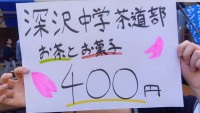 深沢中学茶道部
お茶とお菓子
400円